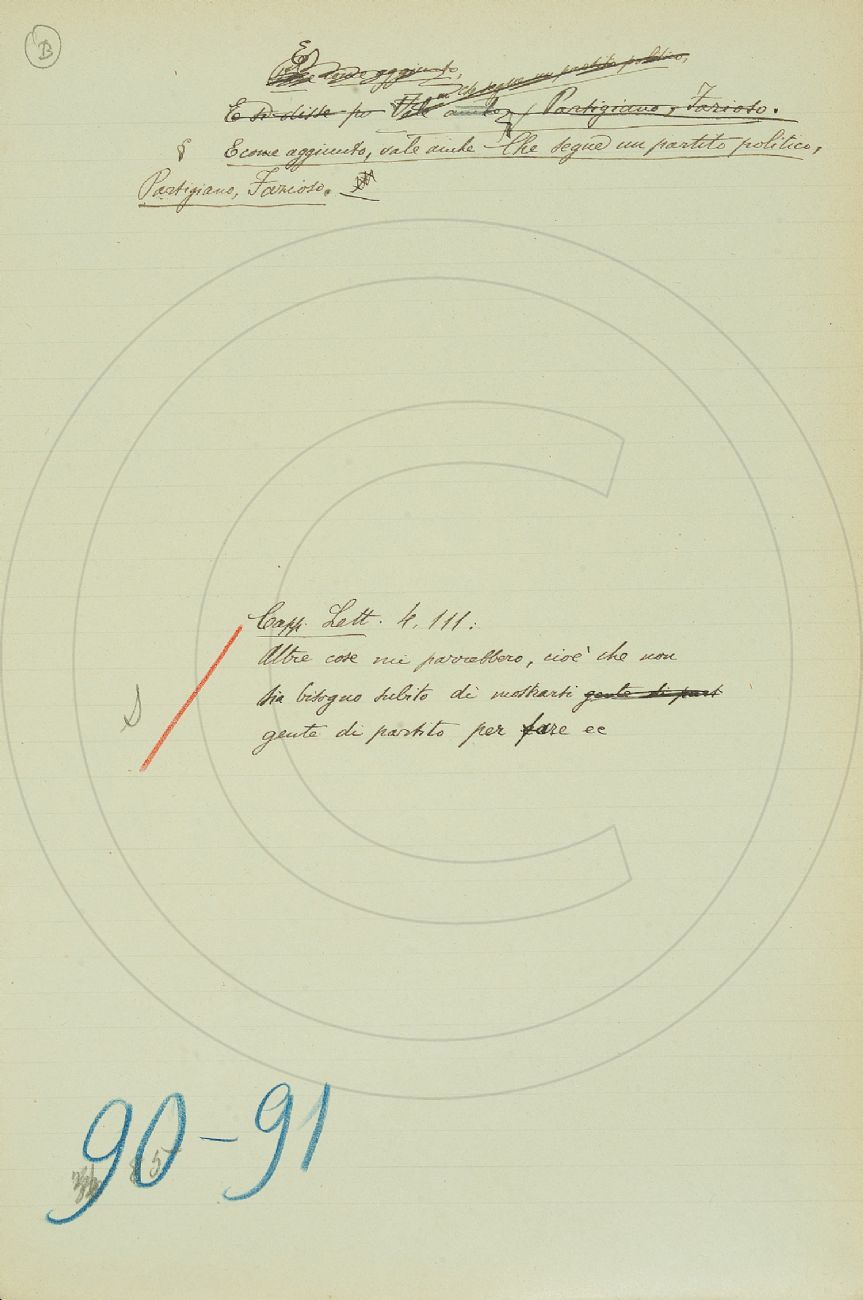 B
E come aggiunto,
che segue un partito politico,
E si disse po Vale anche Partigiano, Fazioso.
§ E come aggiunto, vale anche Che segue un partito politico,
Partigiano, Fazioso.
Capp. Lett. 4. 111:
Altre cose mi parrebbero, cioè che non
sia bisogno subito di mostrarsi gente di part
gente di partito per fare ec
S
90-91